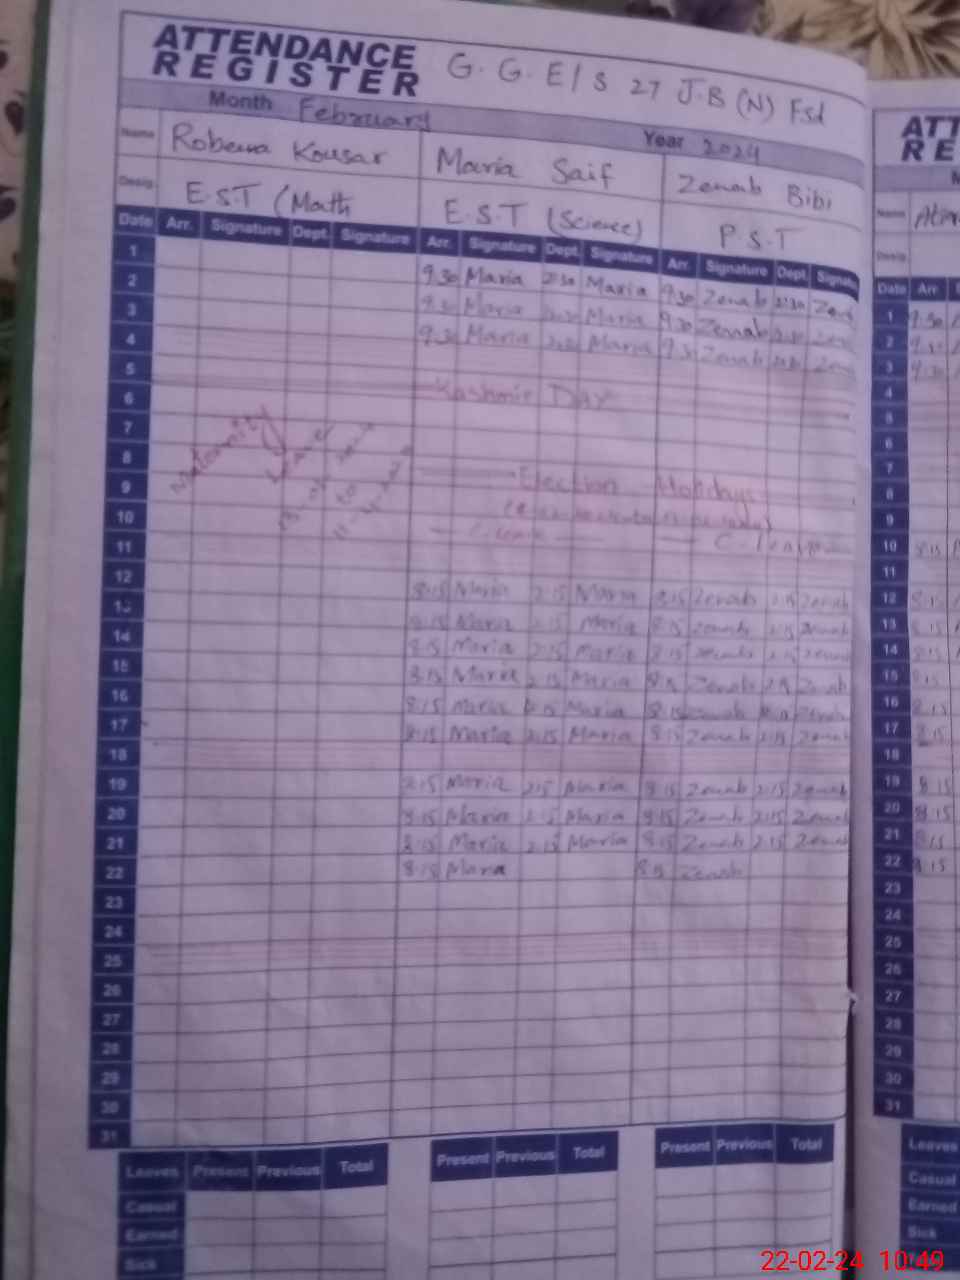 ATTENDANCE REGISTER G.G.E/S 27 J.B (N) Fsd
Month February Year 2024
Name Robeena Kousar Maria Saif Zenab Bibi
Desig. E.S.T (Math E.S.T (Science) P.S.T
Date Arr. Signature Dept. Signature Arr. Signature Dept. Signature Arr. Signature Dept. Signatu
1 9.30 Maria 2:30 Maria 9.30 Zenab 2:30 Zen
2 9.30 Maria Maria 9.30 Zenab
3 9.30 Maria Maria 9.3 Zenab
4
5 Kashmir Day
6
7 Maternity Leave to
8 Election Holidays
9
10 C. leave
11
12 8:15 Maria 2:15 Maria 8:15 Zenab 2:15 Zenab
13 8:15 Maria 2:15 Maria 8:15 Zenab 2:15 Zenab
14 8:15 Maria 2:15 Maria 8:15 Zenab 2:15 Zenab
15 8:15 Maria 2:15 Maria 8:15 Zenab 2:15 Zenab
16 8:15 Maria Maria 8:15 Zenab Zenab
17 8:15 Maria 2:15 Maria 8:15 Zenab 2:15 Zenab
18
19 8:15 Maria 2:15 Maria 8:15 Zenab 2:15 Zenab
20 8:15 Maria 2:15 Maria 8:15 Zenab 2:15 Zenab
21 8:15 Maria 2:15 Maria 8:15 Zenab 2:15 Zenab
22 8:15 Maria 8:15 Zenab
23
24
25
26
27
28
29
30
31
Leaves Present Previous Total Present Previous Total Present Previous Total
Casual
Earned
Sick
ATT
RE
Name
Desig.
Date Arr
1 9.30
2
3 9.30
4
5
6
7
8
9
10 8:15
11
12 8:15
13 8:15
14 8:15
15 8:15
16 8:15
17 8:15
18
19 8:15
20 8:15
21 8:15
22 8:15
23
24
25
26
27
28
29
30
31
Leaves
Casual
Earned
Sick
22-02-24 10:49